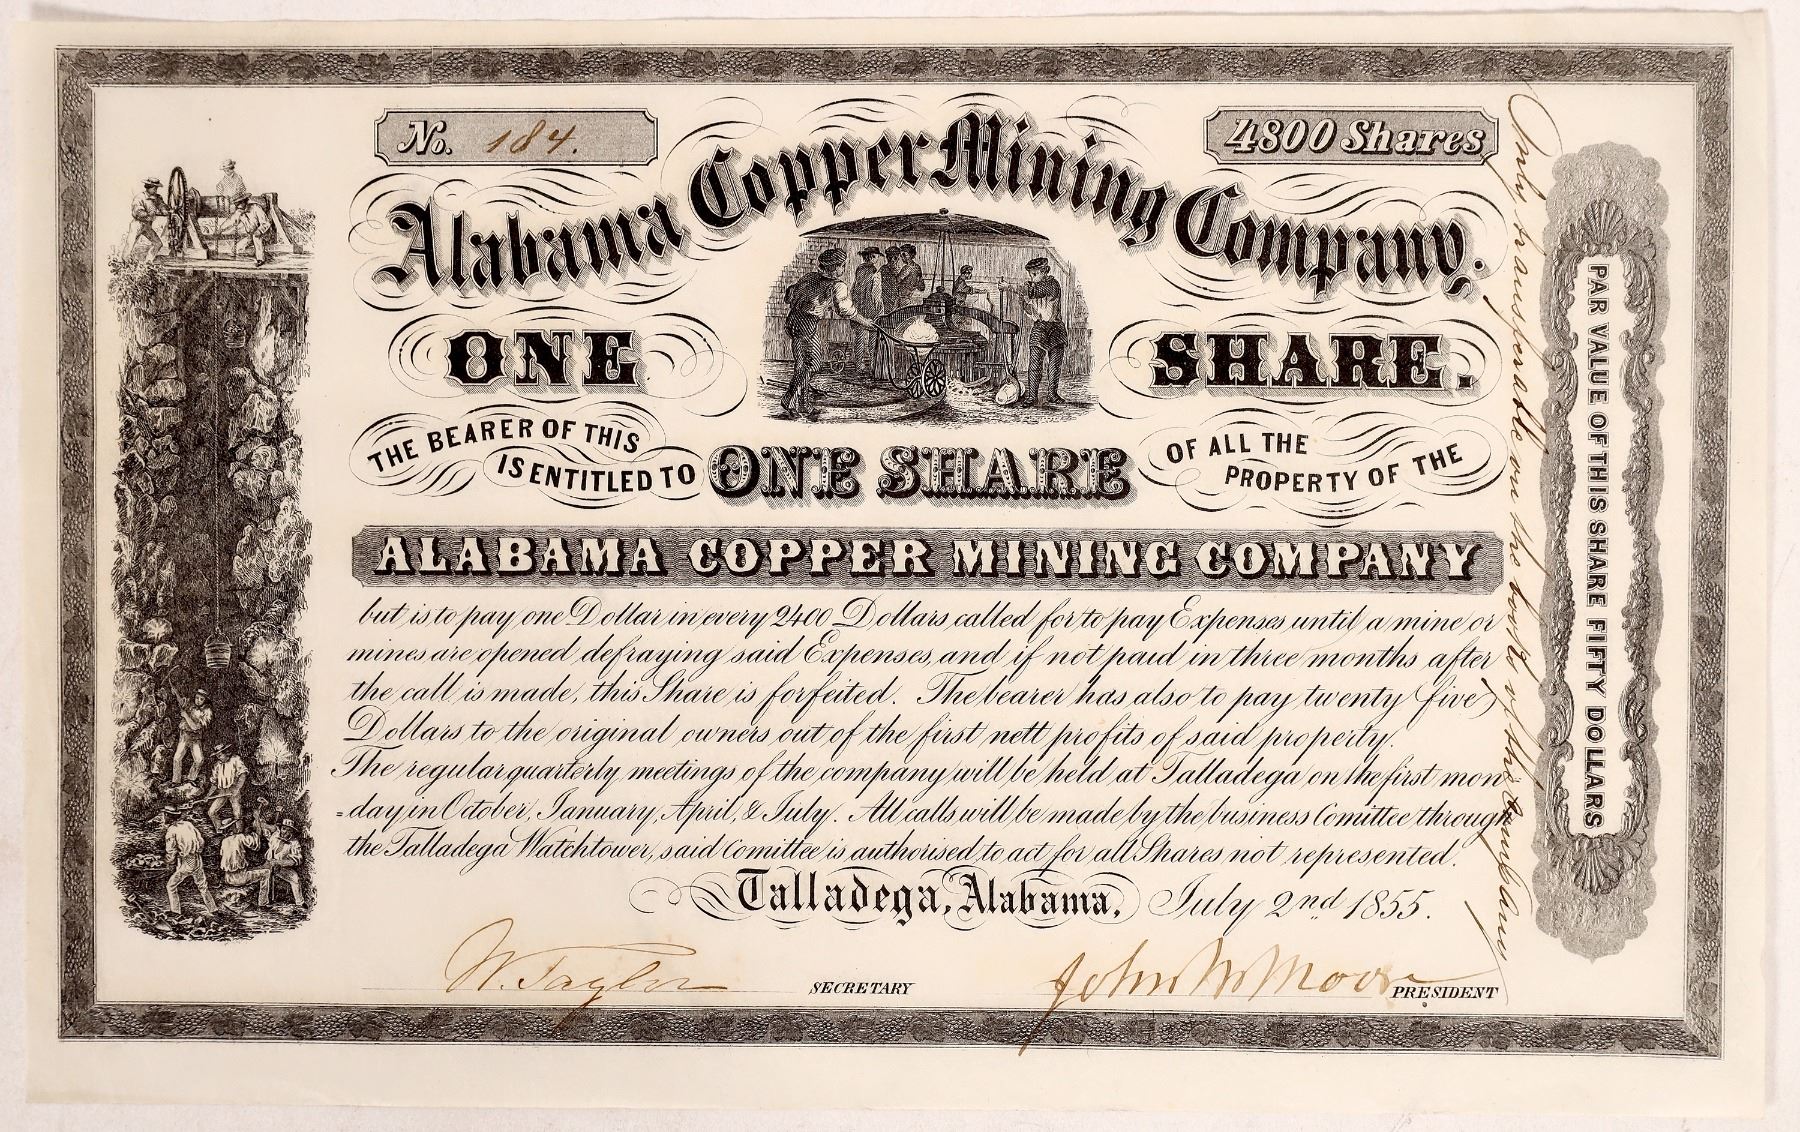 No. 184.
4800 Shares
Alabama Copper Mining Company.
ONE SHARE.
THE BEARER OF THIS
IS ENTITLED TO
ONE SHARE
OF ALL THE
PROPERTY OF THE
ALABAMA COPPER MINING COMPANY
but is to pay one Dollar in every 2400 Dollars called for to pay Expenses until a mine or
mines are opened defraying said Expenses, and if not paid in three months after
the call is made, this Share is forfeited. The bearer has also to pay twenty five
Dollars to the original owners out of the first nett profits of said property.
The regular quarterly meetings of the company will be held at Talladega on the first mon
=day in October, January, April, & July. All calls will be made by the business Comittee through
the Talladega Watchtower, said Comittee is authorised to act for all Shares not represented.
Talladega, Alabama, July 2nd 1855.
W. Taylor SECRETARY
John W Moore PRESIDENT
Only transferable on the books of the Company
PAR VALUE OF THIS SHARE FIFTY DOLLARS